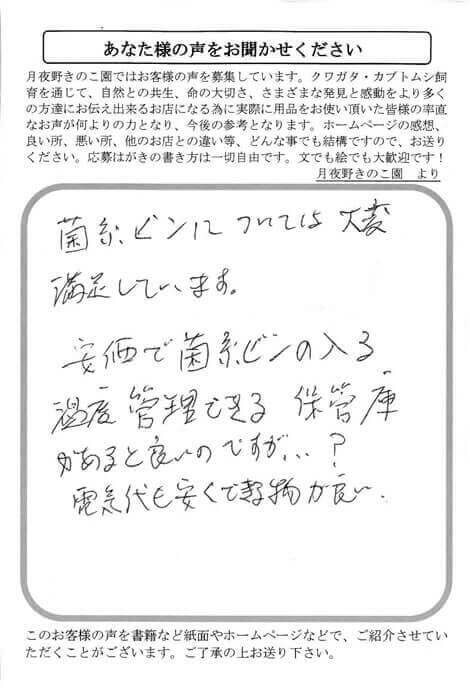 あなた様の声をお聞かせください
月夜野きのこ園ではお客様の声を募集しています。クワガタ・カブトムシ飼
育を通じて、自然との共生、命の大切さ、さまざまな発見と感動をより多く
の方達にお伝え出来るお店になる為に実際に用品をお使い頂いた皆様の率直
なお声が何よりの力となり、今後の参考となります。ホームページの感想、
良い所、悪い所、他のお店との違い等、どんな事でも結構ですので、お送り
ください。応募はがきの書き方は一切自由です。文でも絵でも大歓迎です！
月夜野きのこ園　より
菌糸ビンについては大変
満足しています。
安価で菌糸ビンの入る
温度管理できる保管庫
があると良いのですが…？
電気代も安くて物が良い.
このお客様の声を書籍など紙面やホームページなどで、ご紹介させてい
ただくことがございます。ご了承の上お送り下さい。